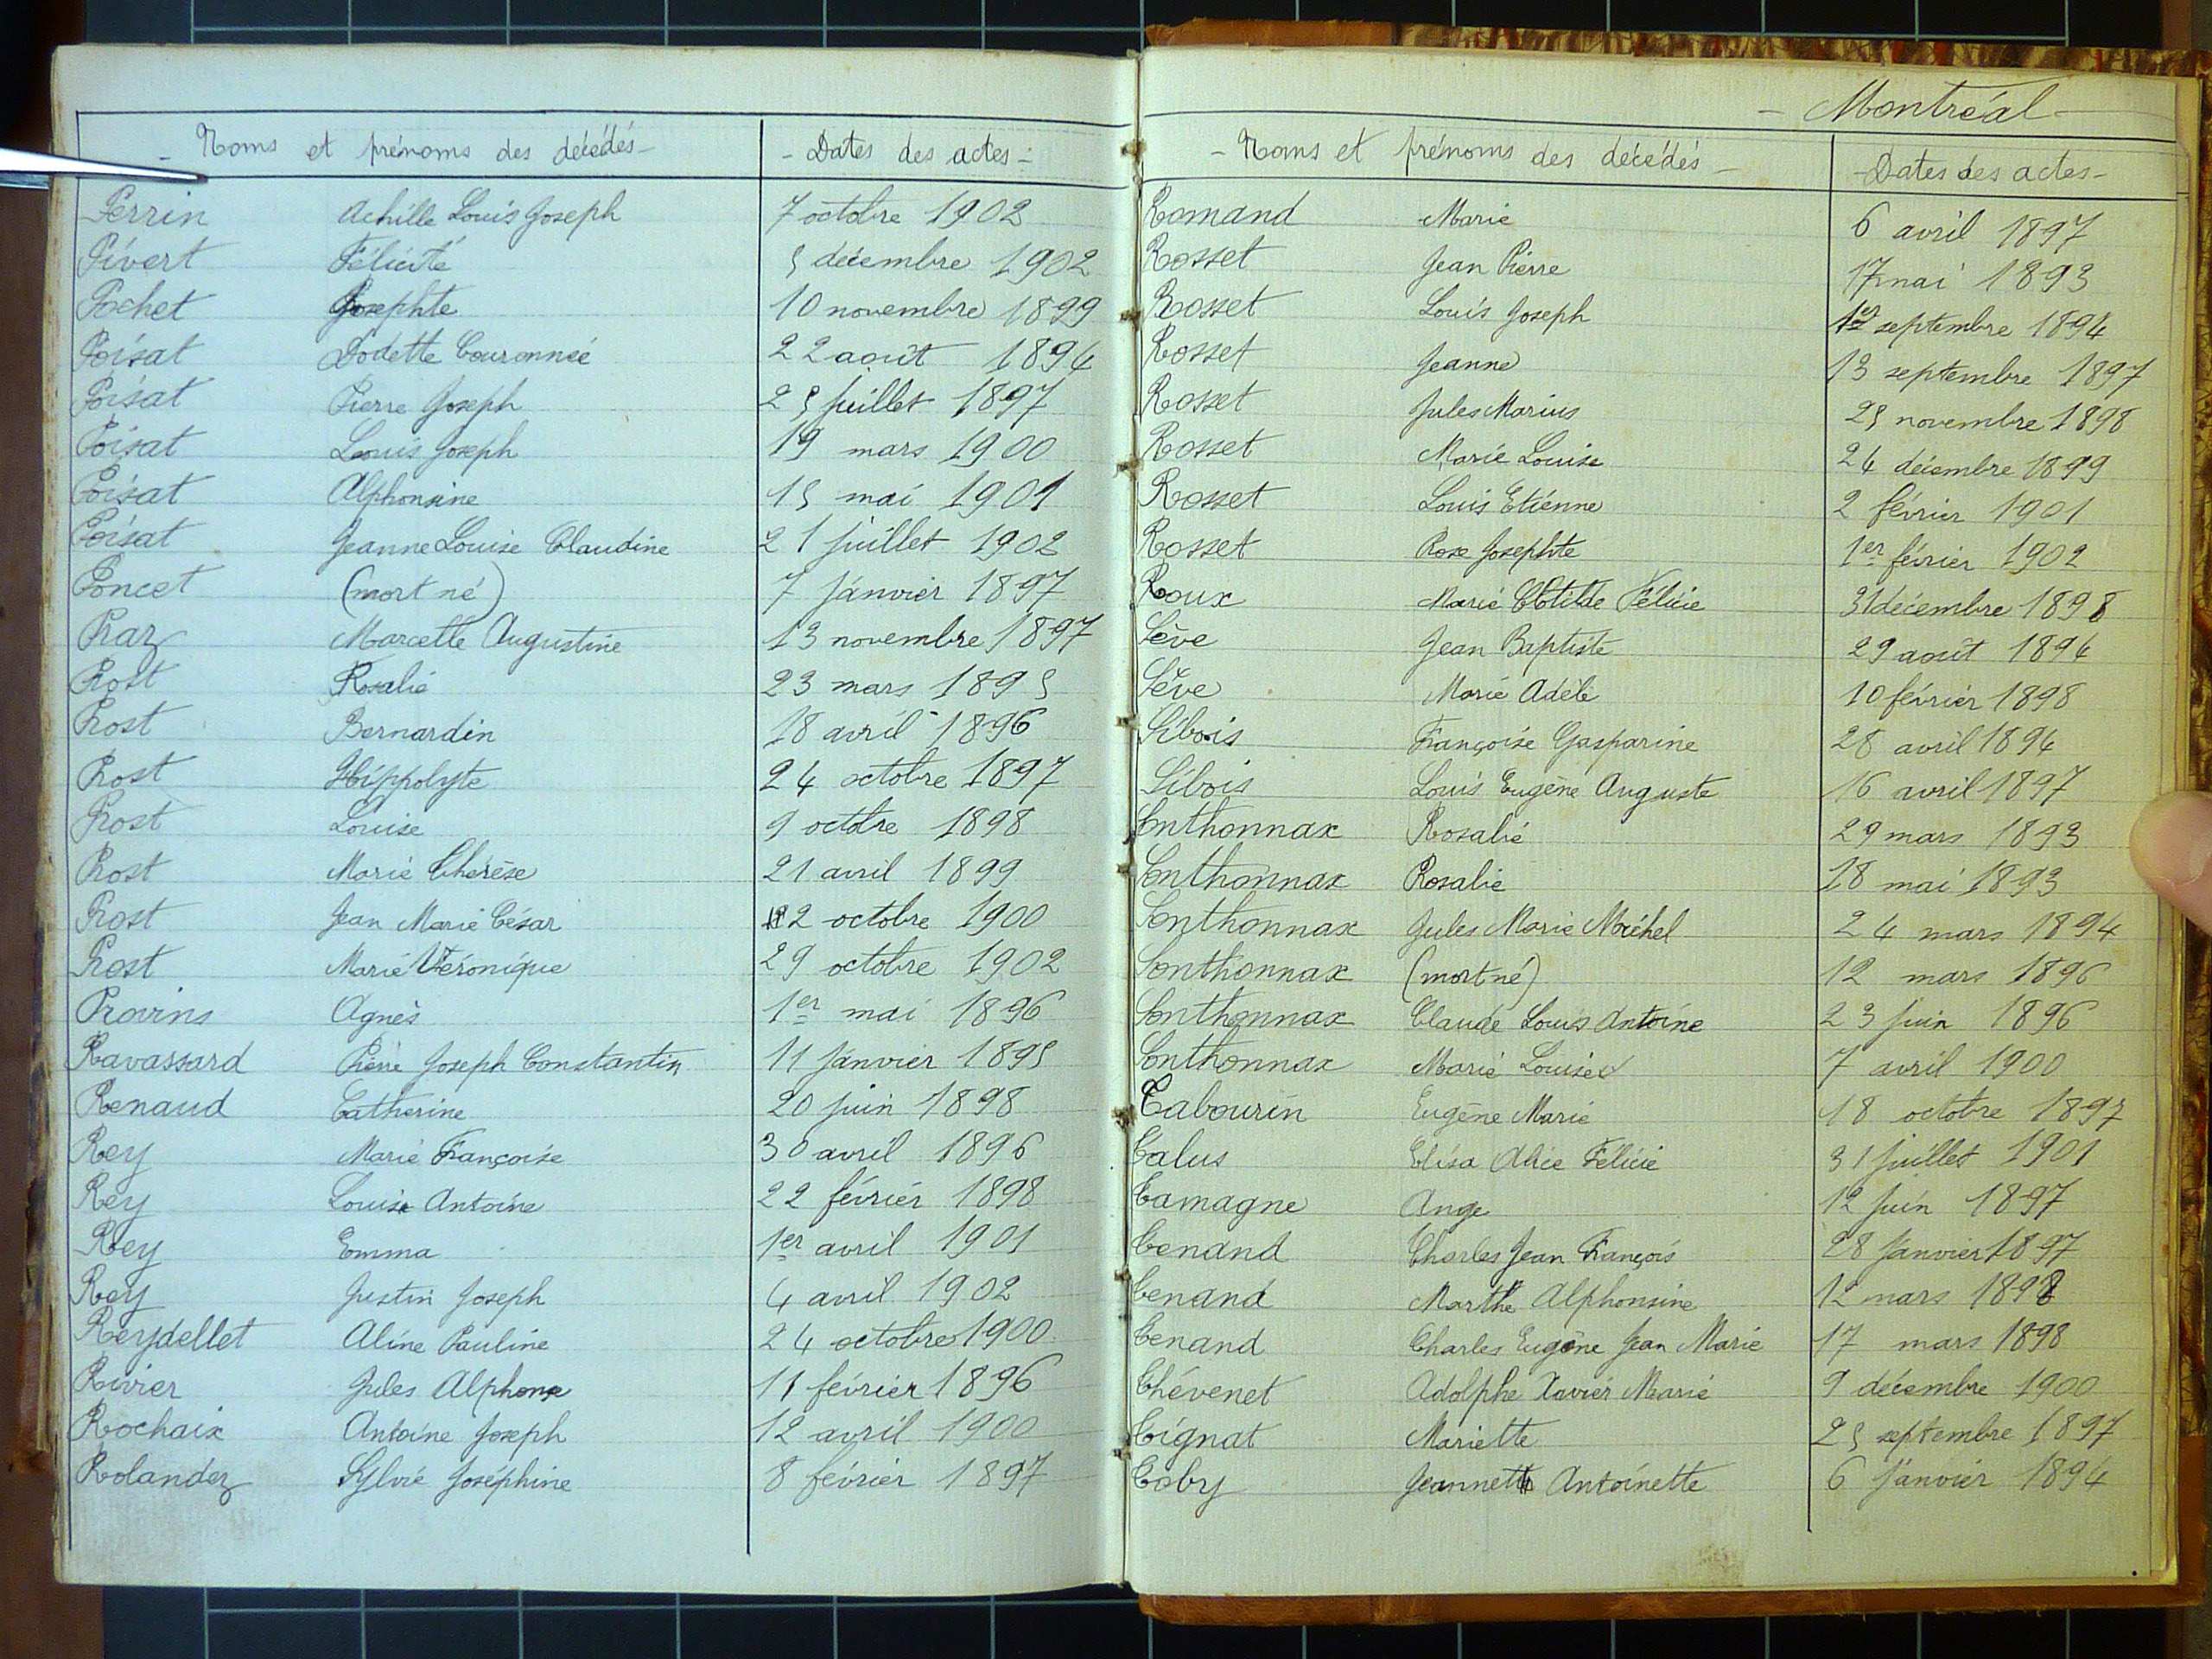 Noms et prénoms des décédés - Dates des actes -
Perrin Achille Louis Joseph 7 octobre 1902
Pivert Félicité 5 décembre 1902
Pochet Josephte 10 novembre 1899
Poisat Dodette Couronnée 22 août 1894
Poisat Pierre Joseph 25 juillet 1897
Poisat Louis Joseph 19 mars 1900
Poisat Alphonsine 15 mai 1901
Poisat Jeanne Louise Claudine 21 juillet 1902
Poncet (mort né) 7 janvier 1897
Praz Marcelle Augustine 13 novembre 1897
Prost Rosalie 23 mars 1895
Prost Bernardin 18 avril 1896
Prost Hippolyte 24 octobre 1897
Prost Louise 9 octobre 1898
Prost Marie Thérèse 21 avril 1899
Prost Jean Marie César 22 octobre 1900
Prost Marie Véronique 29 octobre 1902
Provins Agnès 1er mai 1896
Ravassard Pierre Joseph Constantin 11 janvier 1895
Renaud Catherine 20 juin 1898
Rey Marie Françoise 30 avril 1896
Rey Louis Antoine 22 février 1898
Rey Emma 1er avril 1901
Rey Justin Joseph 4 avril 1902
Reydellet Aline Pauline 24 octobre 1900
Rivier Jules Alphonse 11 février 1896
Rochaix Antoine Joseph 12 avril 1900
Rolandez Sylvie Joséphine 8 février 1897
- Montréal -
- Noms et prénoms des décédés - - Dates des actes -
Romand Marie 6 avril 1897
Rosset Jean Pierre 17 mai 1893
Rosset Louis Joseph 1er septembre 1894
Rosset Jeanne 13 septembre 1897
Rosset Jules Marius 25 novembre 1898
Rosset Marie Louise 24 décembre 1899
Rosset Louis Etienne 2 février 1901
Rosset Rose Josephte 1er février 1902
Roux Marie Clotilde Félicie 31 décembre 1898
Sève Jean Baptiste 29 août 1894
Sève Marie Adèle 10 février 1898
Sibois Françoise Gasparine 28 avril 1894
Sibois Louis Eugène Auguste 16 avril 1897
Sonthonnax Rosalie 29 mars 1893
Sonthonnax Rosalie 18 mai 1893
Sonthonnax Jules Marie Michel 24 mars 1894
Sonthonnax (mort né) 12 mars 1896
Sonthonnax Claude Louis Antoine 23 juin 1896
Sonthonnax Marie Louise 7 avril 1900
Tabourin Eugène Marie 18 octobre 1897
Talus Elisa Alice Félicie 31 juillet 1901
Tamagne Ange 12 juin 1897
Tenand Charles Jean François 28 janvier 1897
Tenand Marthe Alphonsine 12 mars 1898
Tenand Charles Eugène Jean Marie 17 mars 1898
Thévenet Adolphe Xavier Marie 9 décembre 1900
Tignat Mariette 25 septembre 1897
Toby Jeannette Antoinette 6 janvier 1894